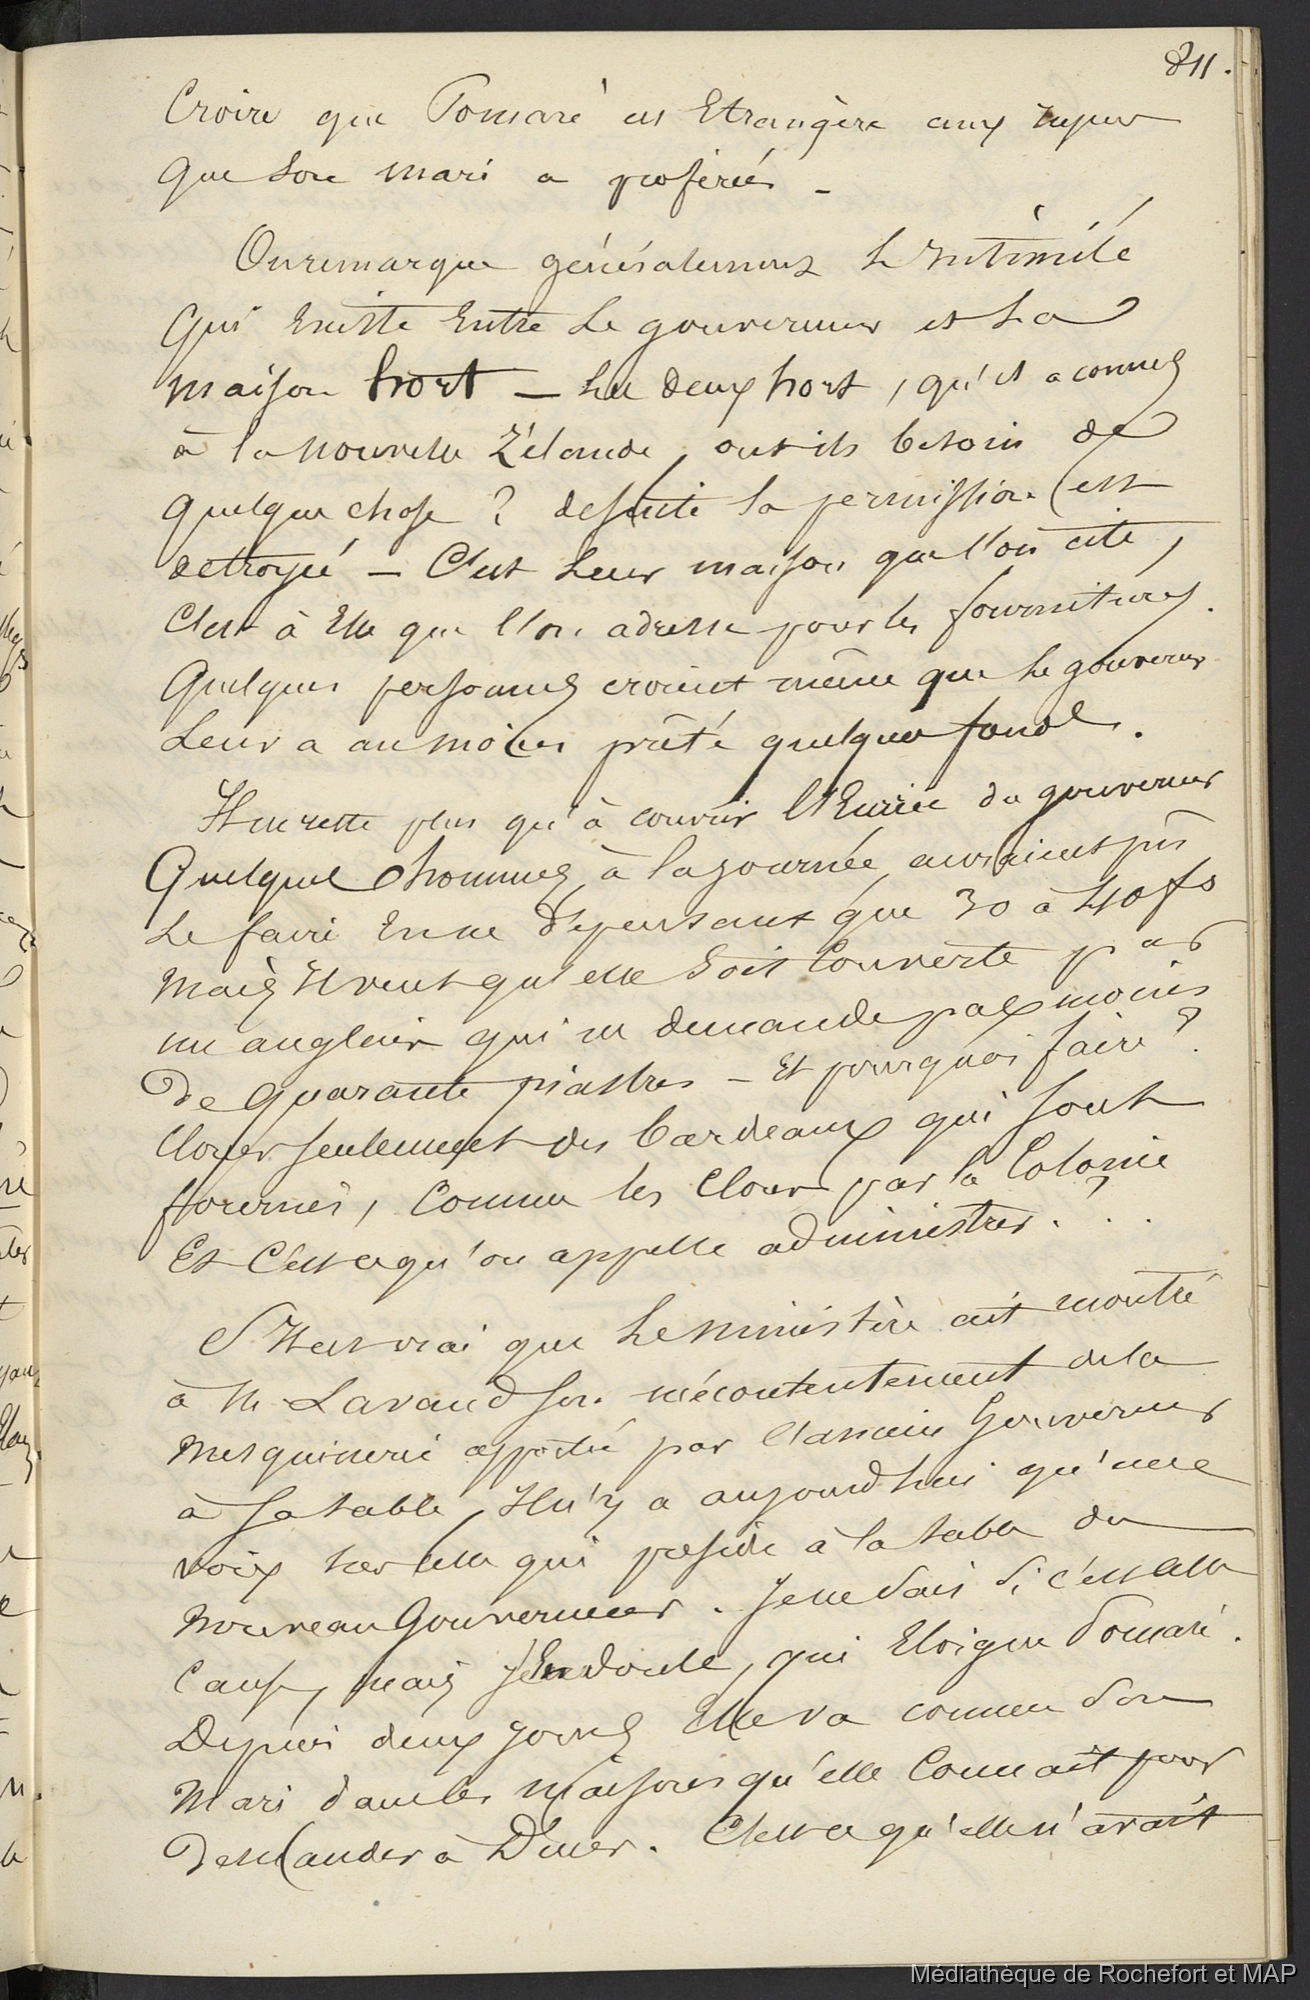 811.
Croire que Pomaré est Etrangère aux injures
que son mari a proférés -
On remarque généralement l'Intimité
qui Existe Entre le gouverneur et la
maison hort — les deux hort, qu'il a connus
à la nouvelle Zélande, ont-ils besoin de
quelque chose ? desuite la permission est
octroyée — C'est leur maison que l'on cite,
C'est à Elle que l'on adresse pour les fournitures.
Quelques personnes croient même que le gouverneur
leur a au moins prêté quelques fonds.
Il ne reste plus qu'à couvrir l'Ecurie du gouverneur
Quelques hommes à la journée auraient pû
le faire En ne dépensant que 30 à 40 fs
mais Il veut qu'elle soit Couverte par
un anglais qui ne demande pas moins
de quarante piastres — Et pourquoi faire ?
Clouer seulement des bardeaux qui sont
fournis, Comme les Clous par la Colonie
Et C'est ce qu'on appelle administrer ? . . .
S'Il est vrai que le Ministère ait montré
à M. Lavaud son mécontentement de la
mesquinerie apportée par l'ancien Gouverneur
à sa table, Il n'y a aujourd'hui qu'une
voix sur celle qui préside à la table du
nouveau Gouverneur. Je ne sais si c'est cette
cause, mais j'En doute, qui Eloigne Pomaré.
Depuis deux jours Elle va comme son
Mari dans les maisons qu'elle Connait pour
demander à Diner. C'est ce qu'elle n'avait
Médiathèque de Rochefort et MAP